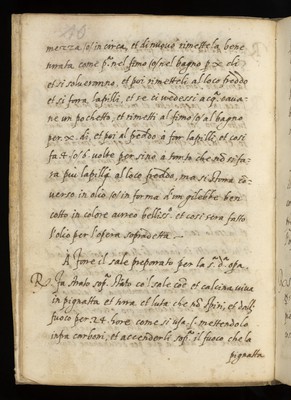 mezza lb in circa, et di nuovo rimettela, bene
lutata come p.ª nel fimo lb nel bagno p X di
et si solveranno, et poi rimetteli al loco freddo
et si fara lapilli, et se ci vedessi acq. cava-
ne un pochetto, et rimetti al fimo lb al bagno
per X di, et poi al freddo à far lapilli, et cosi
fa 4 lb 6 volte per sino à tanto che nõ si fa-
ra piu lapilli al loco freddo, ma si stara co-
verso in olio lb in forma d'un giulebbe ben
cotto in colore aureo belliss.º et cosi sera fatto
l'olio per l'opera sopradetta
A fare il sale preparato per la s.ª d.ª
R. Fa strato sop.ª strato co'l sale cõe et calcina viva
in pignatta et tura et luta che nõ spiri, et dalli
fuoco per 24 hore come si usa mettendolo
infra carboni, et accenderli sop.ª il fuoco che la
pignatta